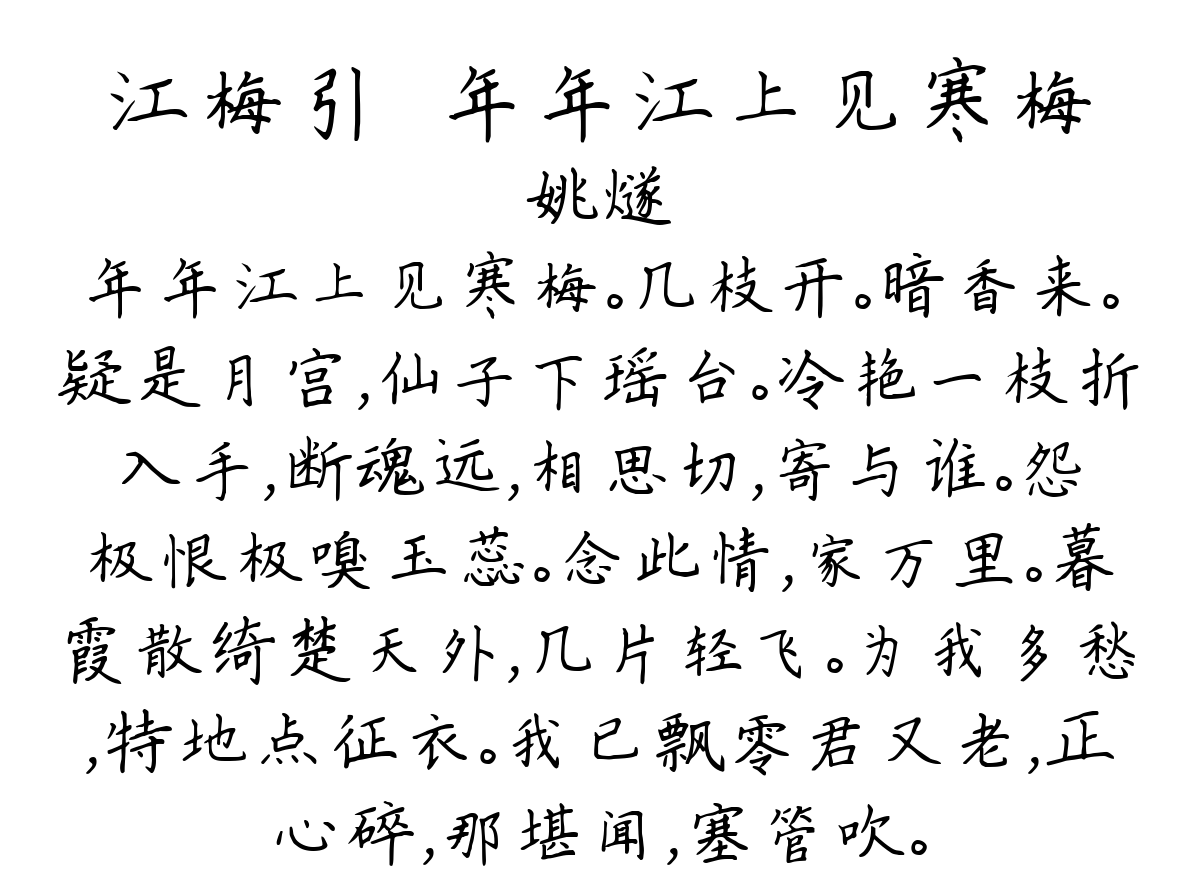 江梅引 年年江上见寒梅
姚燧
年年江上见寒梅。几枝开。暗香来。
疑是月宫,仙子下瑶台。冷艳一枝折
入手,断魂远,相思切,寄与谁。怨
极恨极嗅玉蕊。念此情,家万里。暮
霞散绮楚天外,几片轻飞。为我多愁
,特地点征衣。我已飘零君又老,正
心碎,那堪闻,塞管吹。